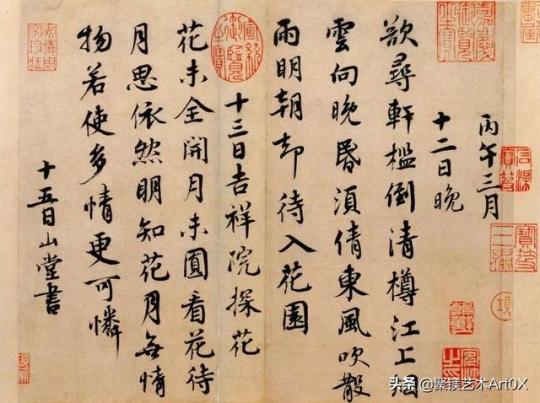 丙午三月
十二日晚
欲尋軒檻倒清樽江上烟
雲向晚昏須倩東風吹散
雨明朝却待入花園
十三日吉祥院探花
花未全開月未圓看花待
月思依然明知花月無情
物若使多情更可憐
十五日山堂書
嘉慶御覽之寶
宣統御覽之寶
头条 @聚镁艺术Art0X